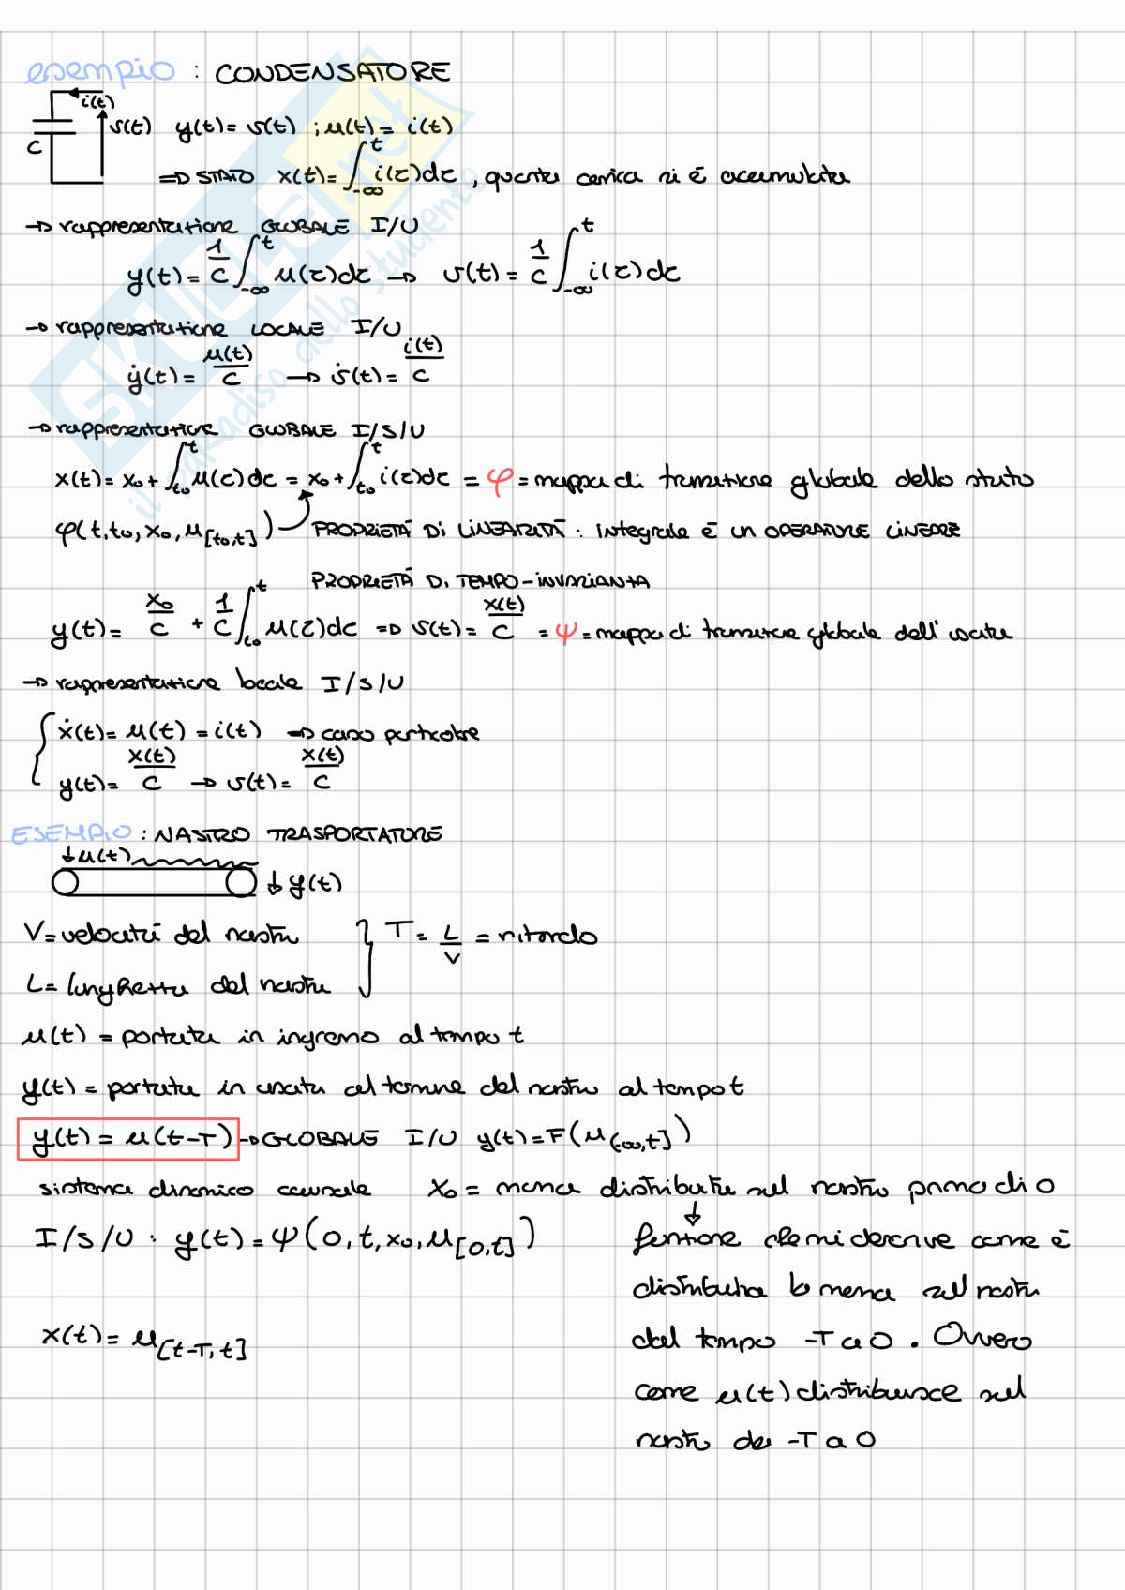 esempio : CONDENSATORE
i(t)
C
v(t) y(t) = v(t) ; u(t) = i(t)
=> STATO x(t) = ∫_{-∞}^{t} i(τ)dτ , quanta carica si è accumulata
→ rappresentazione GLOBALE I/U
y(t) = 1/C ∫_{-∞}^{t} u(τ)dτ → v(t) = 1/C ∫_{-∞}^{t} i(τ)dτ
→ rappresentazione LOCALE I/U
ẏ(t) = u(t)/C → v̇(t) = i(t)/C
→ rappresentazione GLOBALE I/S/U
x(t) = x₀ + ∫_{t₀}^{t} u(τ)dτ = x₀ + ∫_{t₀}^{t} i(τ)dτ = φ = mappa di transizione globale dello stato
φ(t, t₀, x₀, u_[t₀,t]) PROPRIETÀ DI LINEARITÀ : integrale è un OPERATORE LINEARE
PROPRIETÀ DI TEMPO-invarianza
y(t) = x₀/C + 1/C ∫_{t₀}^{t} u(τ)dτ => v(t) = x(t)/C = ψ = mappa di transizione globale dell'uscita
→ rappresentazione locale I/S/U
ẋ(t) = u(t) = i(t) → caso particolare
y(t) = x(t)/C → v(t) = x(t)/C
ESEMPIO : NASTRO TRASPORTATORE
↓u(t)
↓ y(t)
V = velocità del nastro } T = L/V = ritardo
L = lunghezza del nastro
u(t) = portata in ingresso al tempo t
y(t) = portata in uscita al termine del nastro al tempo t
y(t) = u(t-T) → GLOBALE I/U y(t) = F(u_(-∞,t])
sistema dinamico causale x₀ = massa distribuita sul nastro prima di 0
I/S/U : y(t) = ψ(0, t, x₀, u_[0,t]) ↓ funzione che mi descrive come è
distribuita la massa sul nastro
x(t) = u_[t-T, t] dal tempo -T a 0 . Ovvero
come u(t) distribuisce sul
nastro da -T a 0
SKUOLA.net
il paradiso dello studente